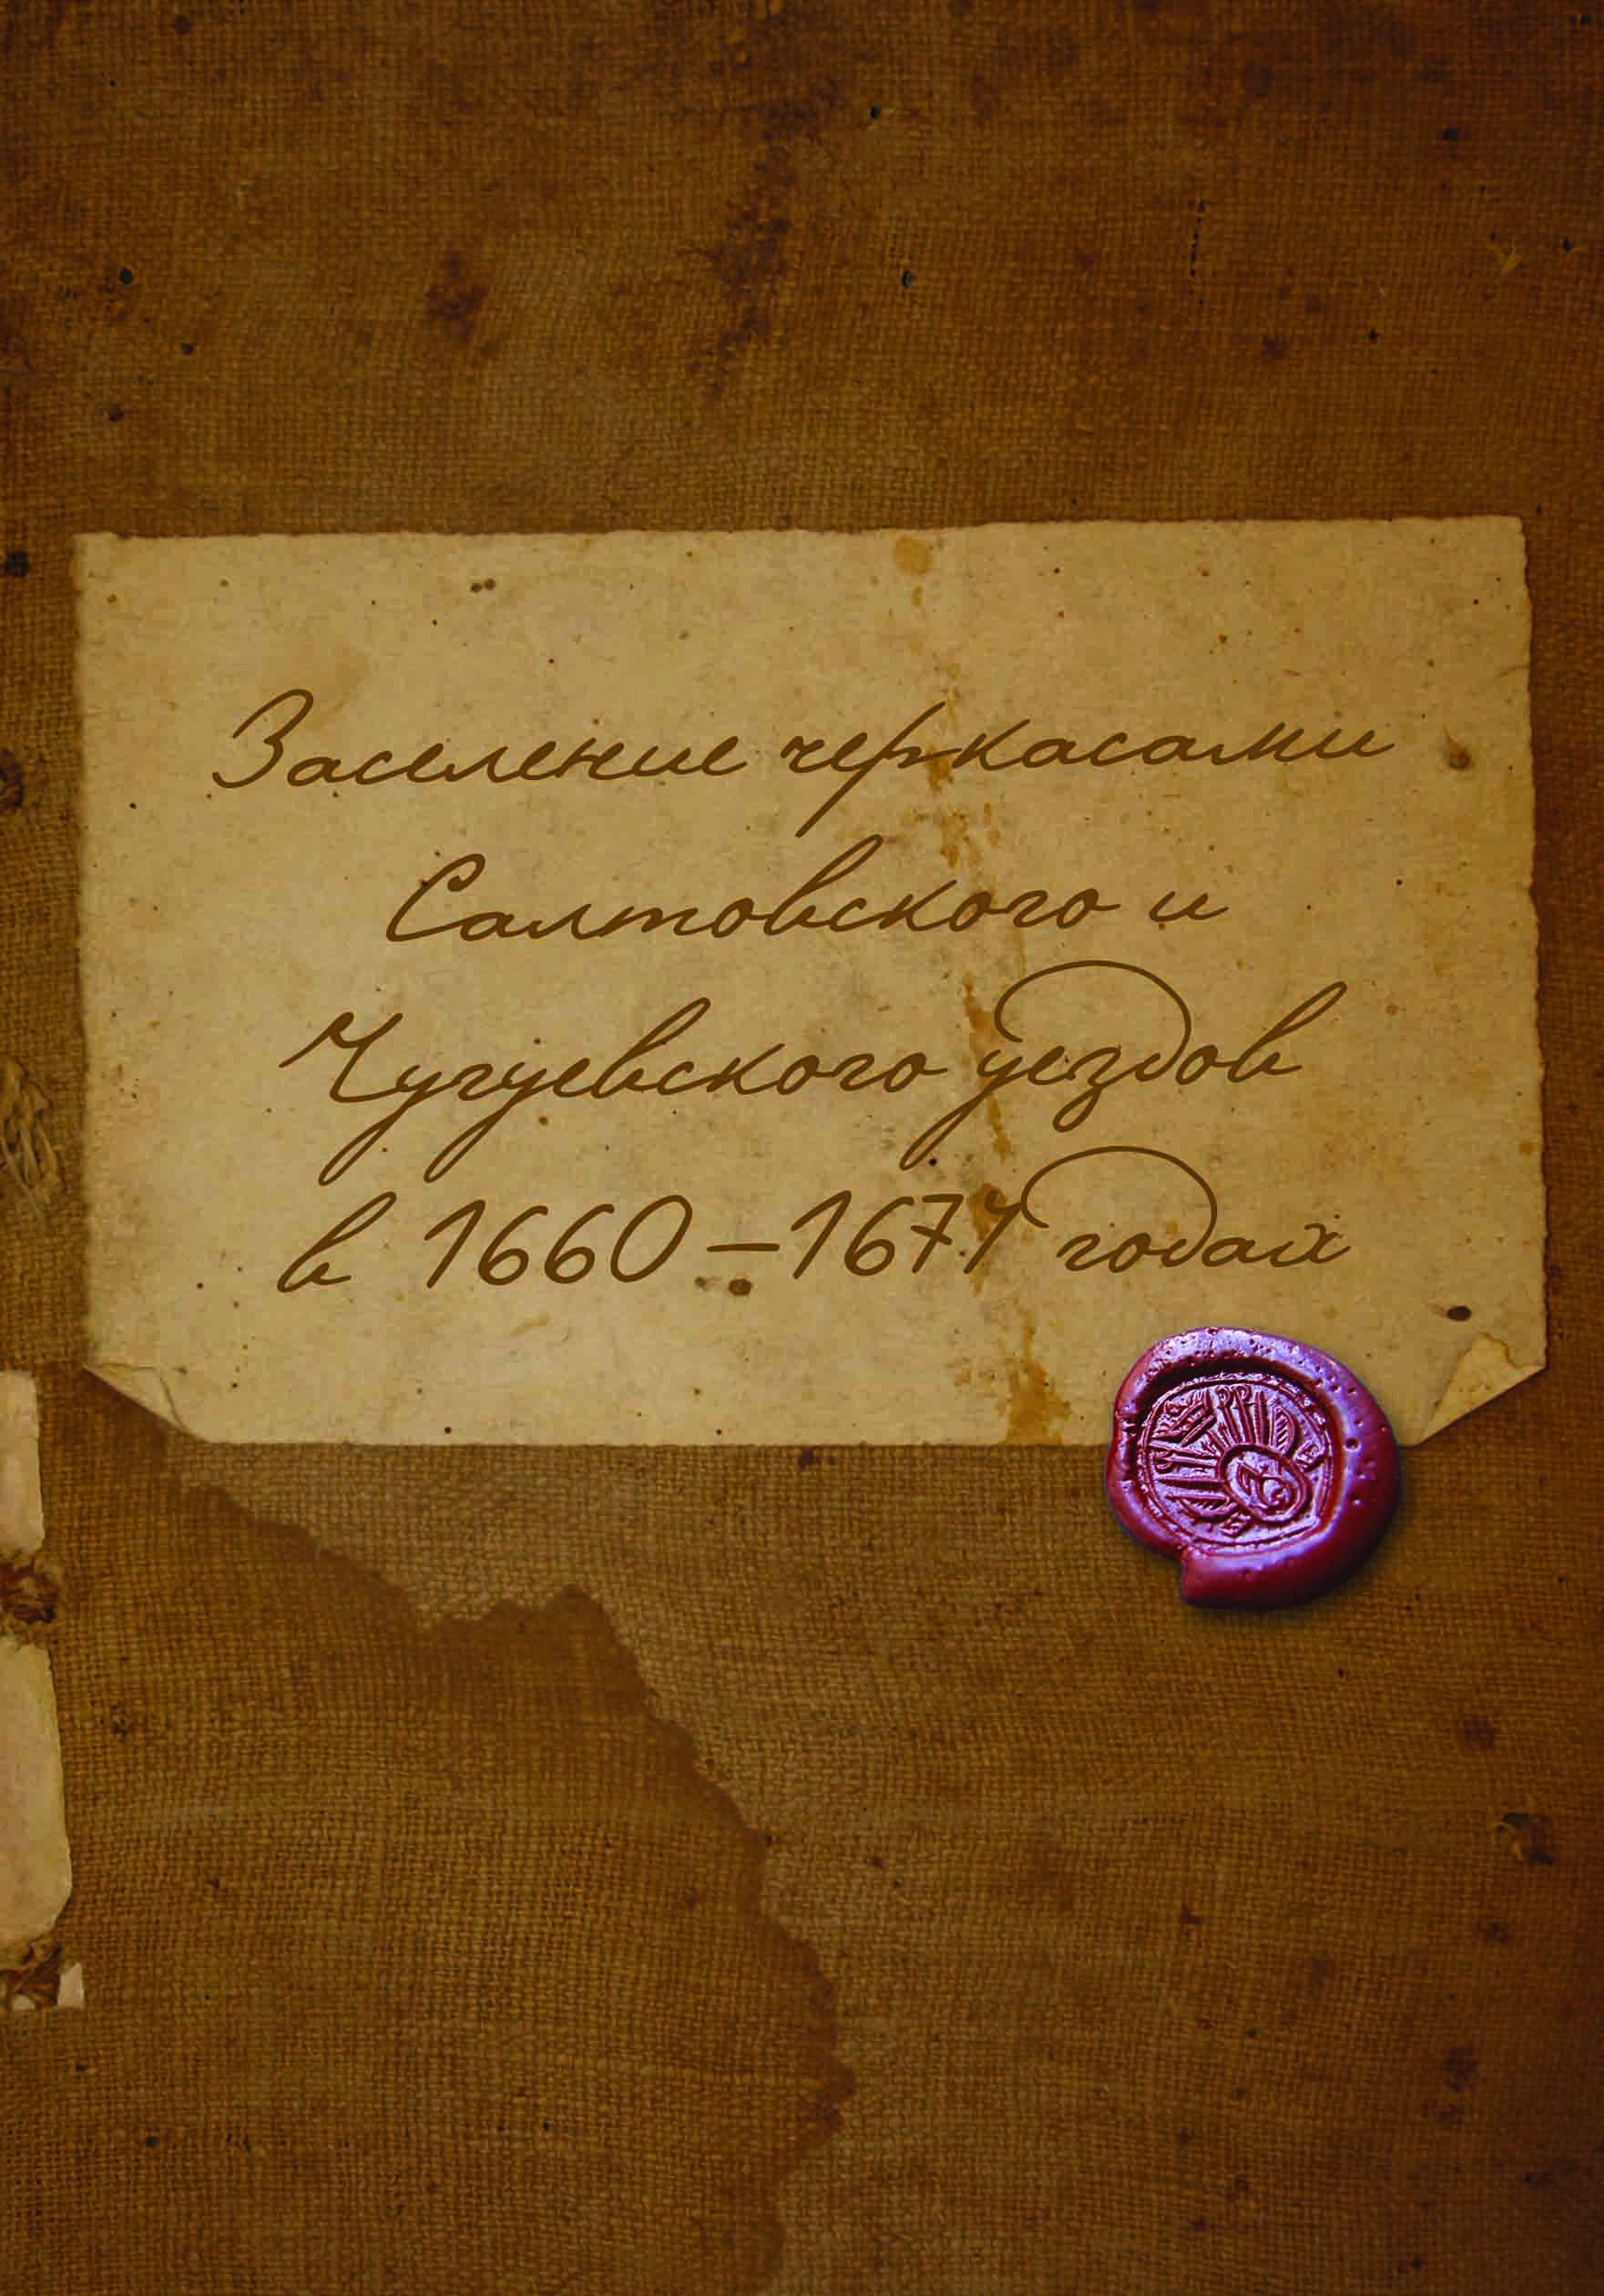 Заселение черкасами
Салтовского и
Чугуевского уездов
в 1660–1677 годах